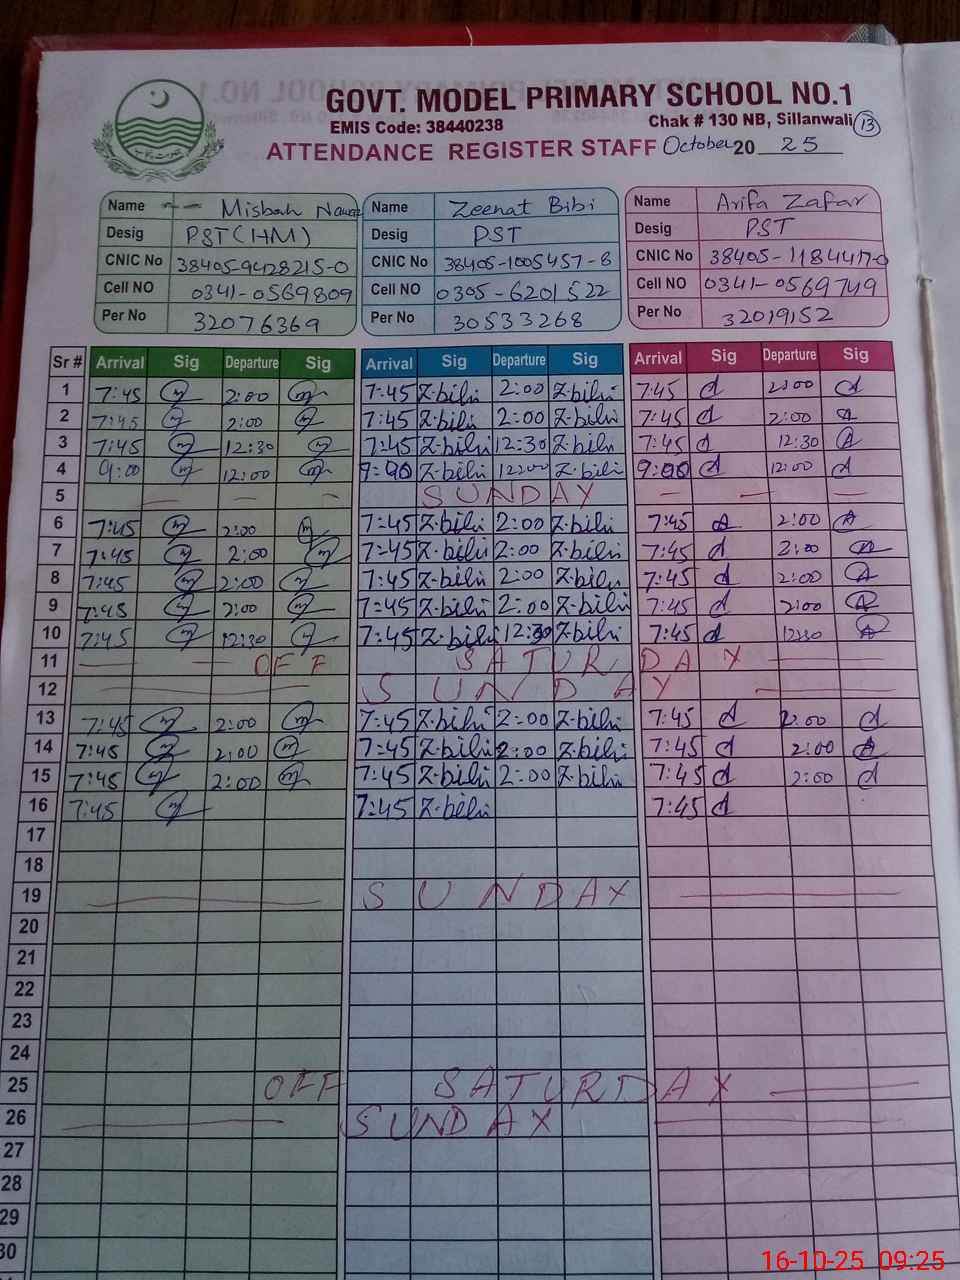 GOVT. MODEL PRIMARY SCHOOL NO.1
EMIS Code: 38440238 Chak # 130 NB, Sillanwali 13
ATTENDANCE REGISTER STAFF October 2025
Name Misbah Nawaz Name Zeenat Bibi Name Arifa Zafar
Desig PST(HM) Desig PST Desig PST
CNIC No 38405-9428215-0 CNIC No 38405-1005457-8 CNIC No 38405-1184417-0
Cell NO 0341-0569809 Cell NO 0305-6201522 Cell NO 0341-0569749
Per No 32076369 Per No 30533268 Per No 32019152
Sr # Arrival Sig Departure Sig Arrival Sig Departure Sig Arrival Sig Departure Sig
1 7:45 2:00 7:45 Z.bibi 2:00 Z.bibi 7:45 2:00
2 7:45 2:00 7:45 Z.bibi 2:00 Z.bibi 7:45 2:00
3 7:45 12:30 7:45 Z.bibi 12:30 Z.bibi 7:45 12:30
4 9:00 12:00 9:00 Z.bibi 12:00 Z.bibi 9:00 12:00
5 SUNDAY
6 7:45 2:00 7:45 Z.bibi 2:00 Z.bibi 7:45 2:00
7 7:45 2:00 7:45 Z.bibi 2:00 Z.bibi 7:45 2:00
8 7:45 2:00 7:45 Z.bibi 2:00 Z.bibi 7:45 2:00
9 7:45 2:00 7:45 Z.bibi 2:00 Z.bibi 7:45 2:00
10 7:45 12:30 7:45 Z.bibi 12:30 Z.bibi 7:45 12:30
11 OFF SATURDAY
12 SUNDAY
13 7:45 2:00 7:45 Z.bibi 2:00 Z.bibi 7:45 2:00
14 7:45 2:00 7:45 Z.bibi 2:00 Z.bibi 7:45 2:00
15 7:45 2:00 7:45 Z.bibi 2:00 Z.bibi 7:45 2:00
16 7:45 7:45 Z.bibi 7:45
17
18
19 SUNDAY
20
21
22
23
24
25 OFF SATURDAY
26 SUNDAY
27
28
29
30
16-10-25 09:25